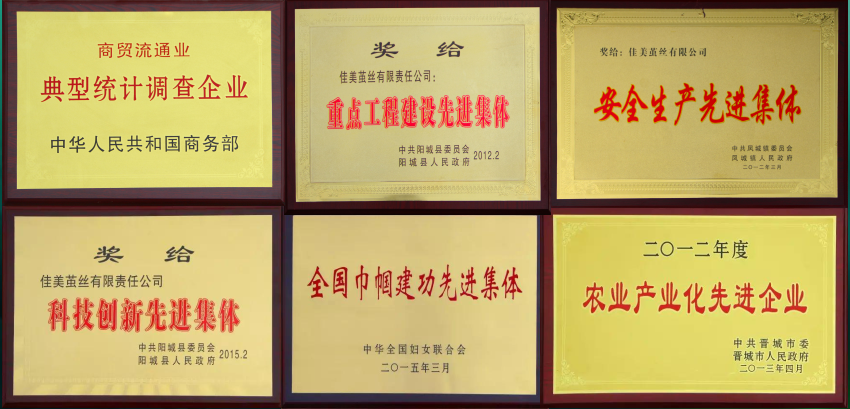 商贸流通业
典型统计调查企业
中华人民共和国商务部
奖 给
佳美茧丝有限责任公司：
重点工程建设先进集体
中共阳城县委员会
阳城县人民政府 2012.2
奖给：佳美茧丝有限公司
安全生产先进集体
中共凤城镇委员会
凤城镇人民政府
二〇一二年三月
奖 给
佳美茧丝有限责任公司
科技创新先进集体
中共阳城县委员会
阳城县人民政府 2015.2
全国巾帼建功先进集体
中华全国妇女联合会
二〇一五年三月
二〇一二年度
农业产业化先进企业
中共晋城市委
晋城市人民政府
二〇一三年四月